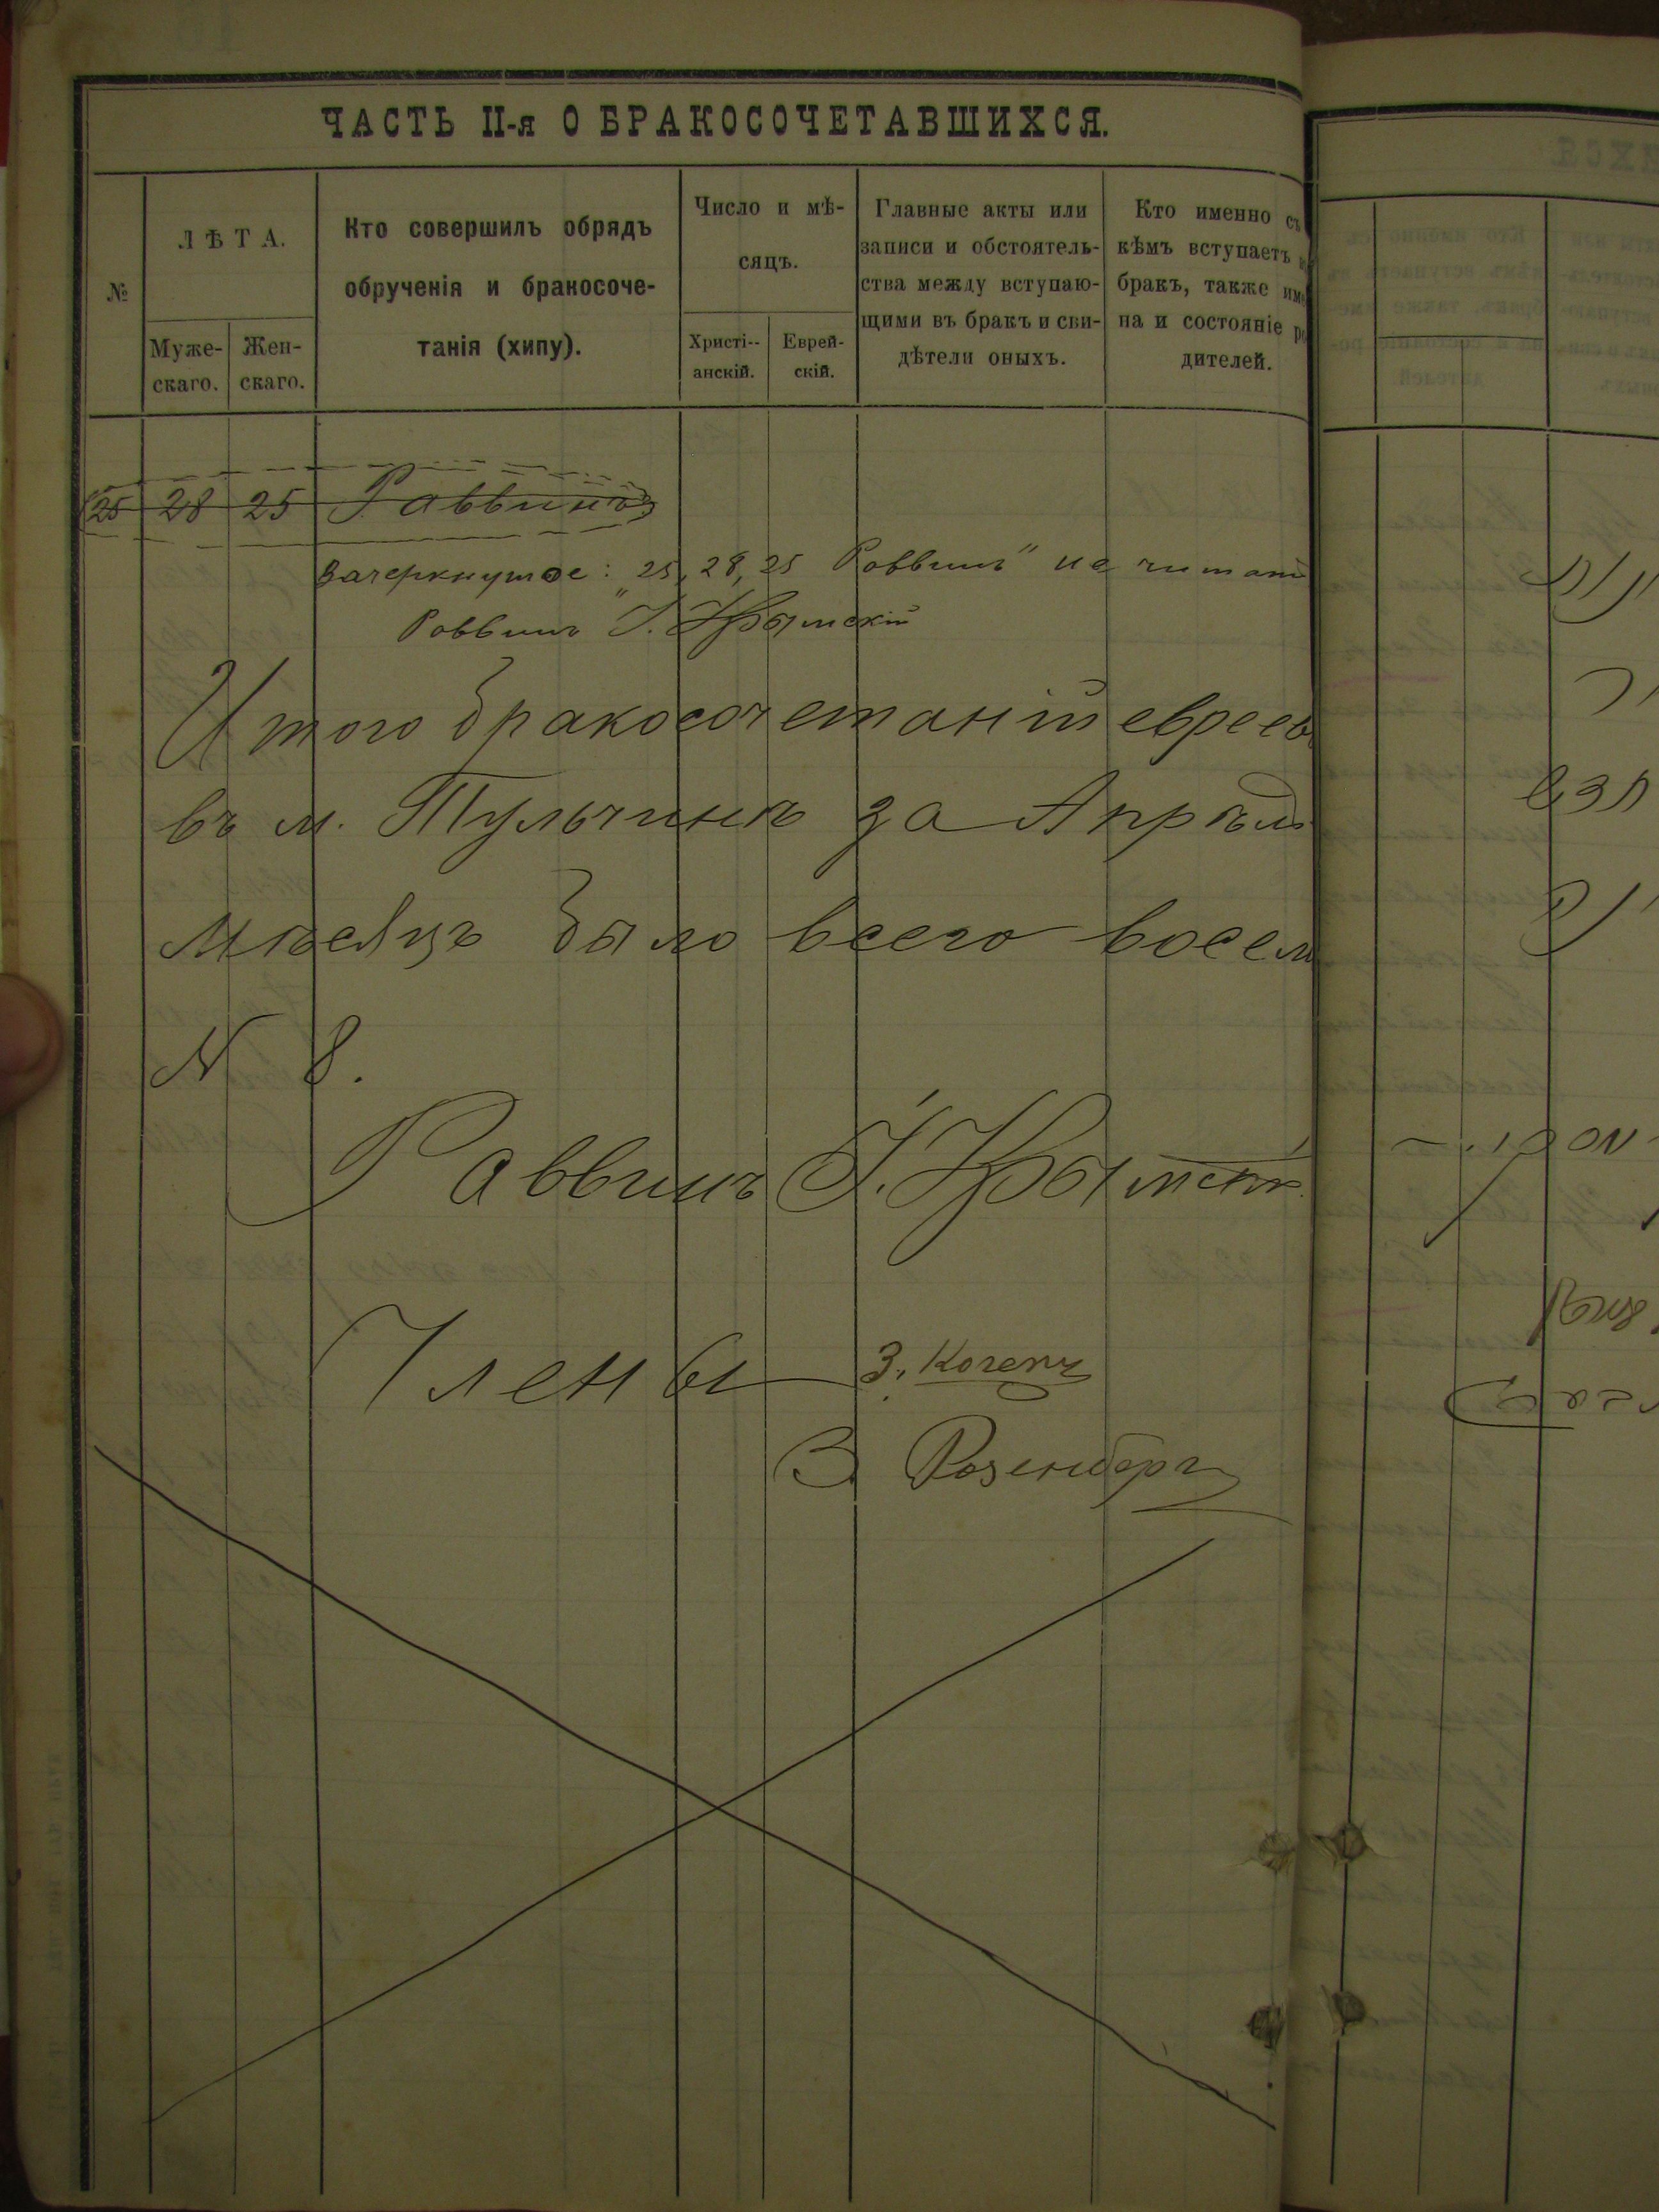 ЧАСТЬ II-я О БРАКОСОЧЕТАВШИХСЯ.
№
ЛѢТА.
Муже-
скаго.
Жен-
скаго.
Кто совершилъ обрядъ
обрученія и бракосоче-
танія (хипу).
Число и мѣ-
сяцъ.
Христі--
анскій.
Еврей-
скій.
Главные акты или
записи и обстоятель-
ства между вступаю-
щими въ бракъ и сви-
дѣтели оныхъ.
Кто именно съ
кѣмъ вступаетъ
бракъ, также име
на и состояніе ро
дителей.
25 28 25 Раввинъ
Зачеркнутое: „25, 28, 25 Раввинъ" не читать
Раввинъ І. Крымскій
Итого бракосочетаній евреевъ
въ м. Тульчинѣ за Апрѣль
мѣсяцъ было всего восем
N 8.
Раввинъ І. Крымскій
Члены З. Когенъ
З Розенбергъ